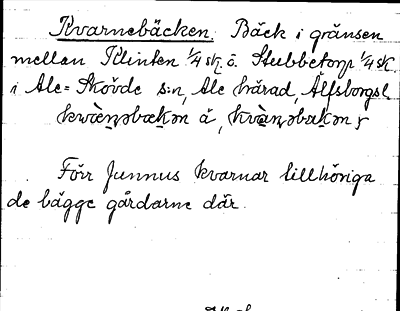 Kvarnebäcken. Bäck i gränsen
mellan Klinten 1/4 sk. o. Stubbetorp 1/4 sk.
i Ale-Skövde s:n, Ale härad, Älfsborgs l.
Förr funnos kvarnar tillhöriga
de bägge gårdarne där.